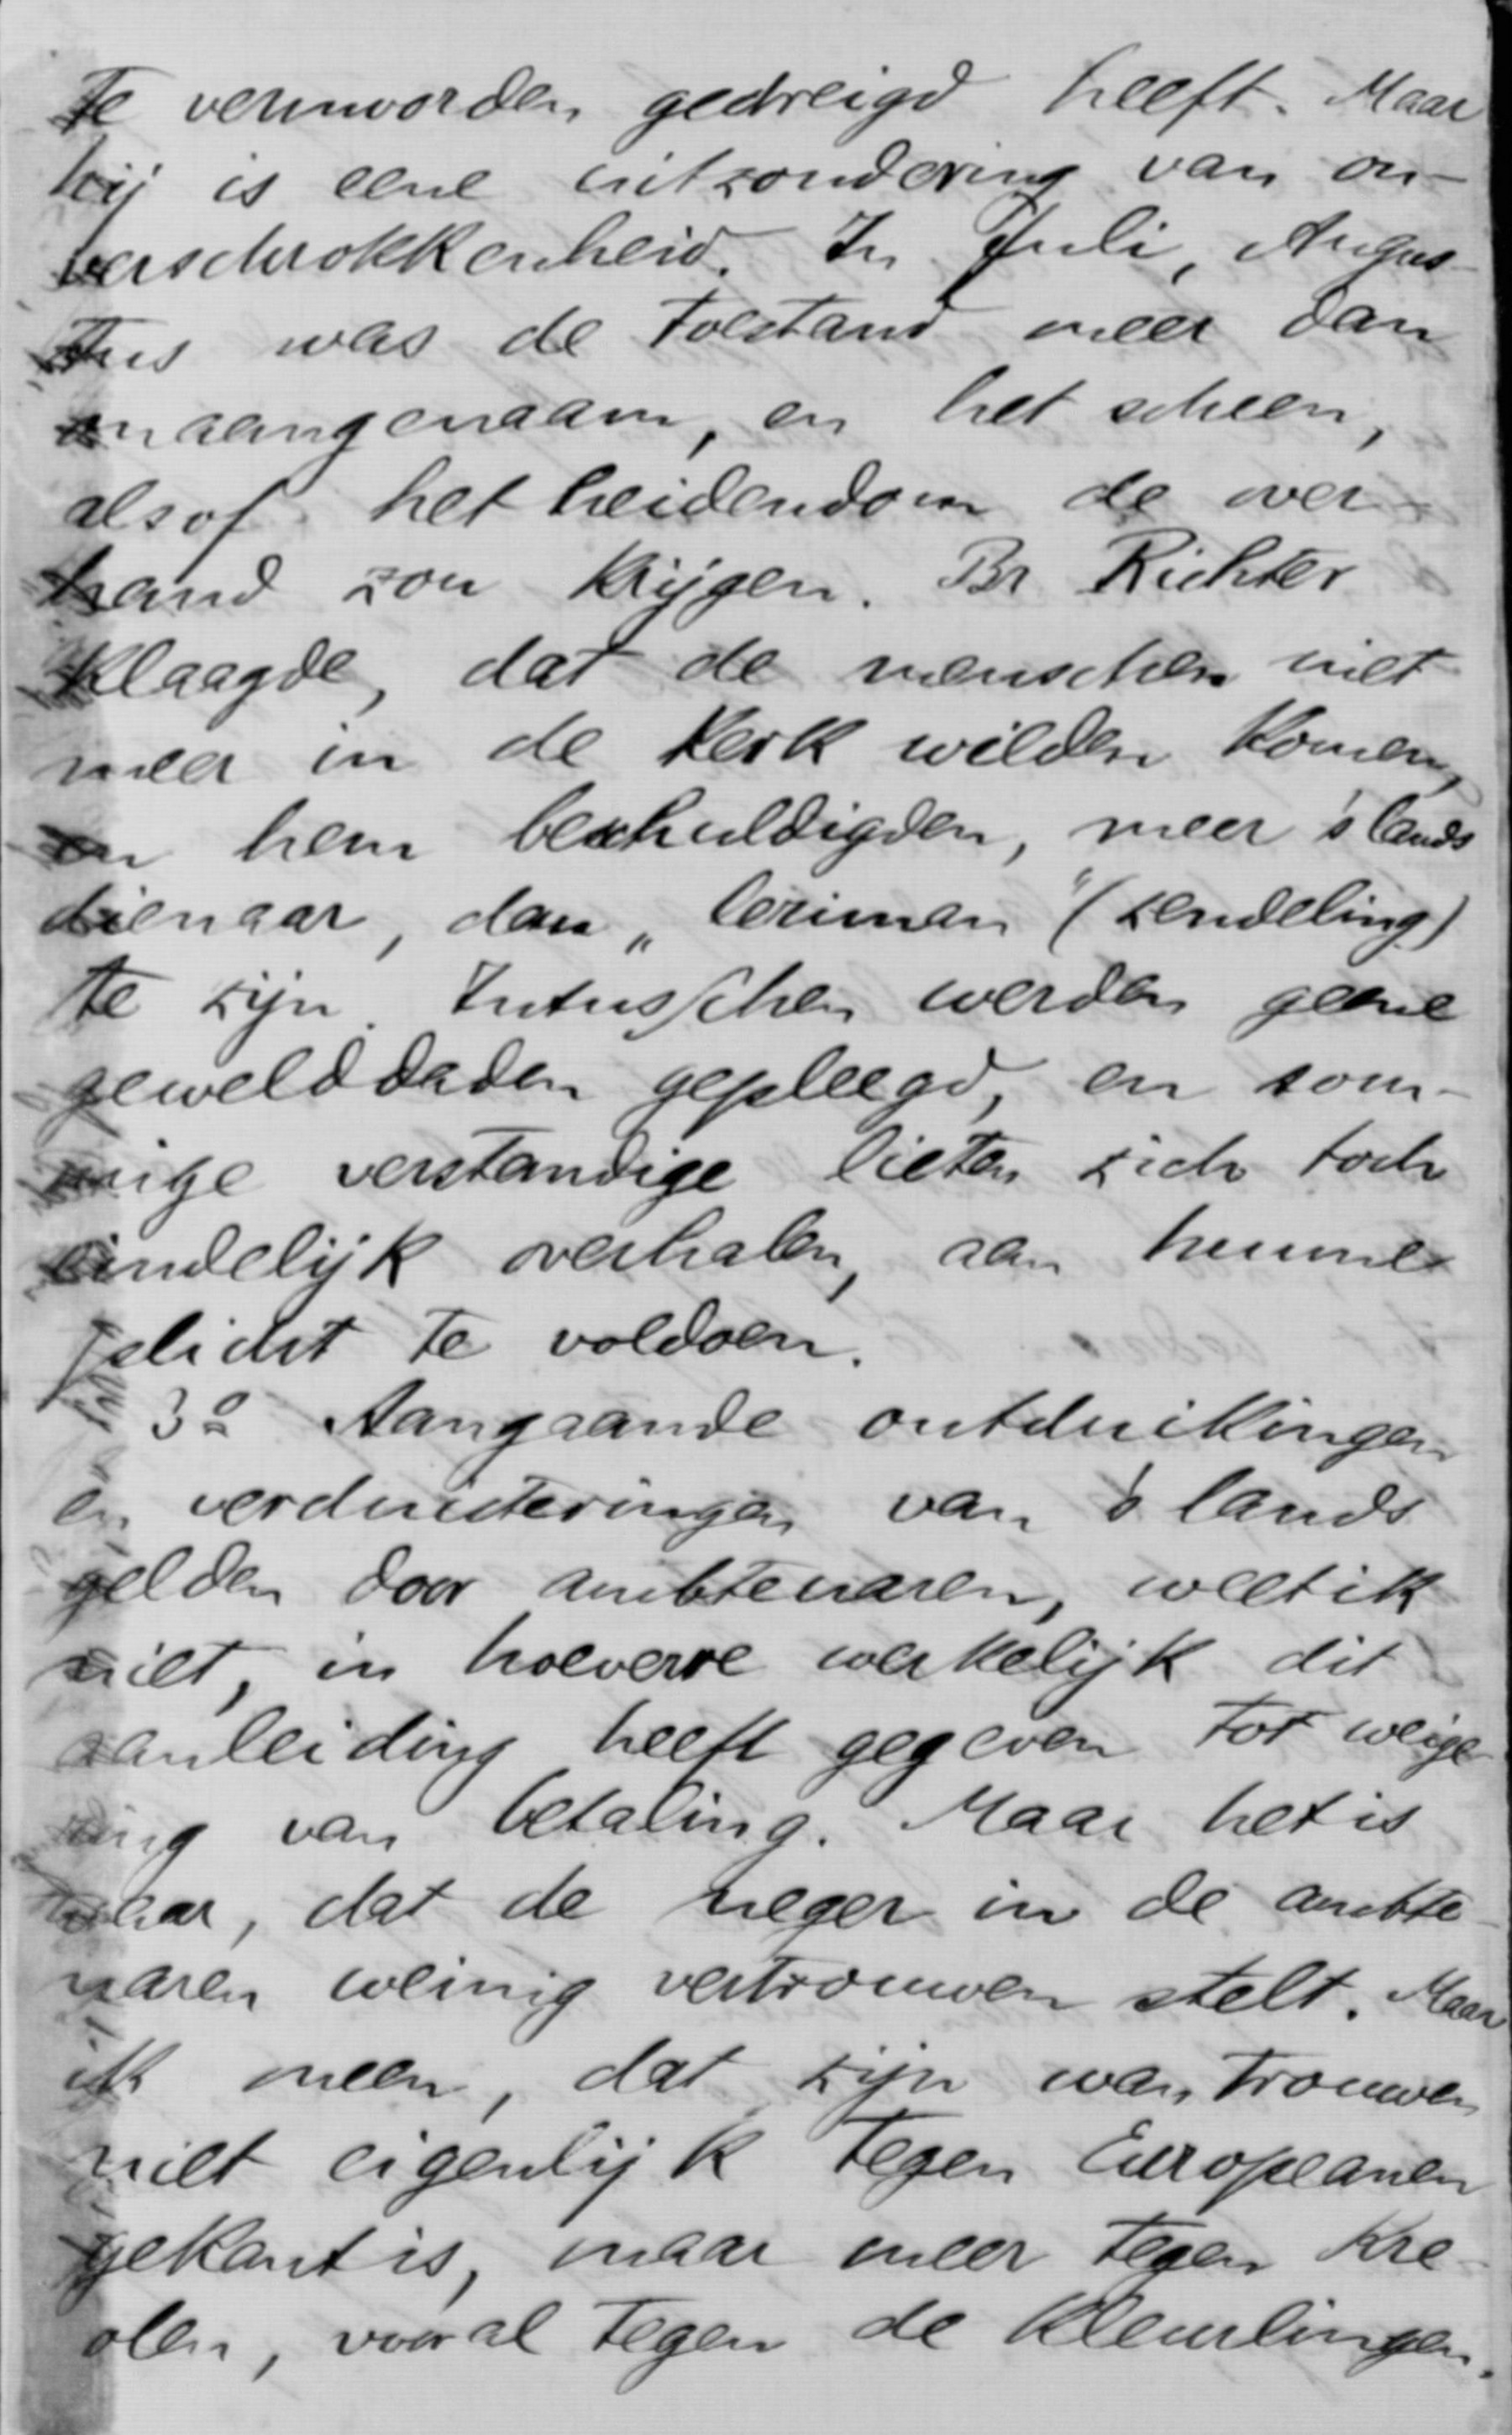 te vermoorden gedreigd heeft. Maar
hij is eene uitzondering van on-
verschrokkenheid. In Juli, Augus-
tus was de toestand meer dan
onaangenaam, en het scheen,
alsof het heidendom de over-
hand zou krijgen. Br Richter
klaagde, dat de menschen niet
meer in de kerk wilden komen,
en hem beschuldigden, meer 's lands
dienaar, dan „leriman" (zendeling)
te zijn. Intusschen werden geene
gewelddaden gepleegd, en som-
mige verstandige lieten zich toch
eindelijk overhalen, aan hunne
plicht te voldoen.
3º Aangaande ontduikingen
en verduisteringen van 's lands
gelden door ambtenaren, weet ik
niet, in hoeverre werkelijk dit
aanleiding heeft gegeven tot weige-
ring van betaling. Maar het is
waar, dat de neger in de ambte-
naren weinig vertrouwen stelt. Maar
ik meen, dat zijn wantrouwen
niet eigenlijk tegen Europeanen
gekant is, maar meer tegen Kre-
olen, vooral tegen de Kleurlingen.